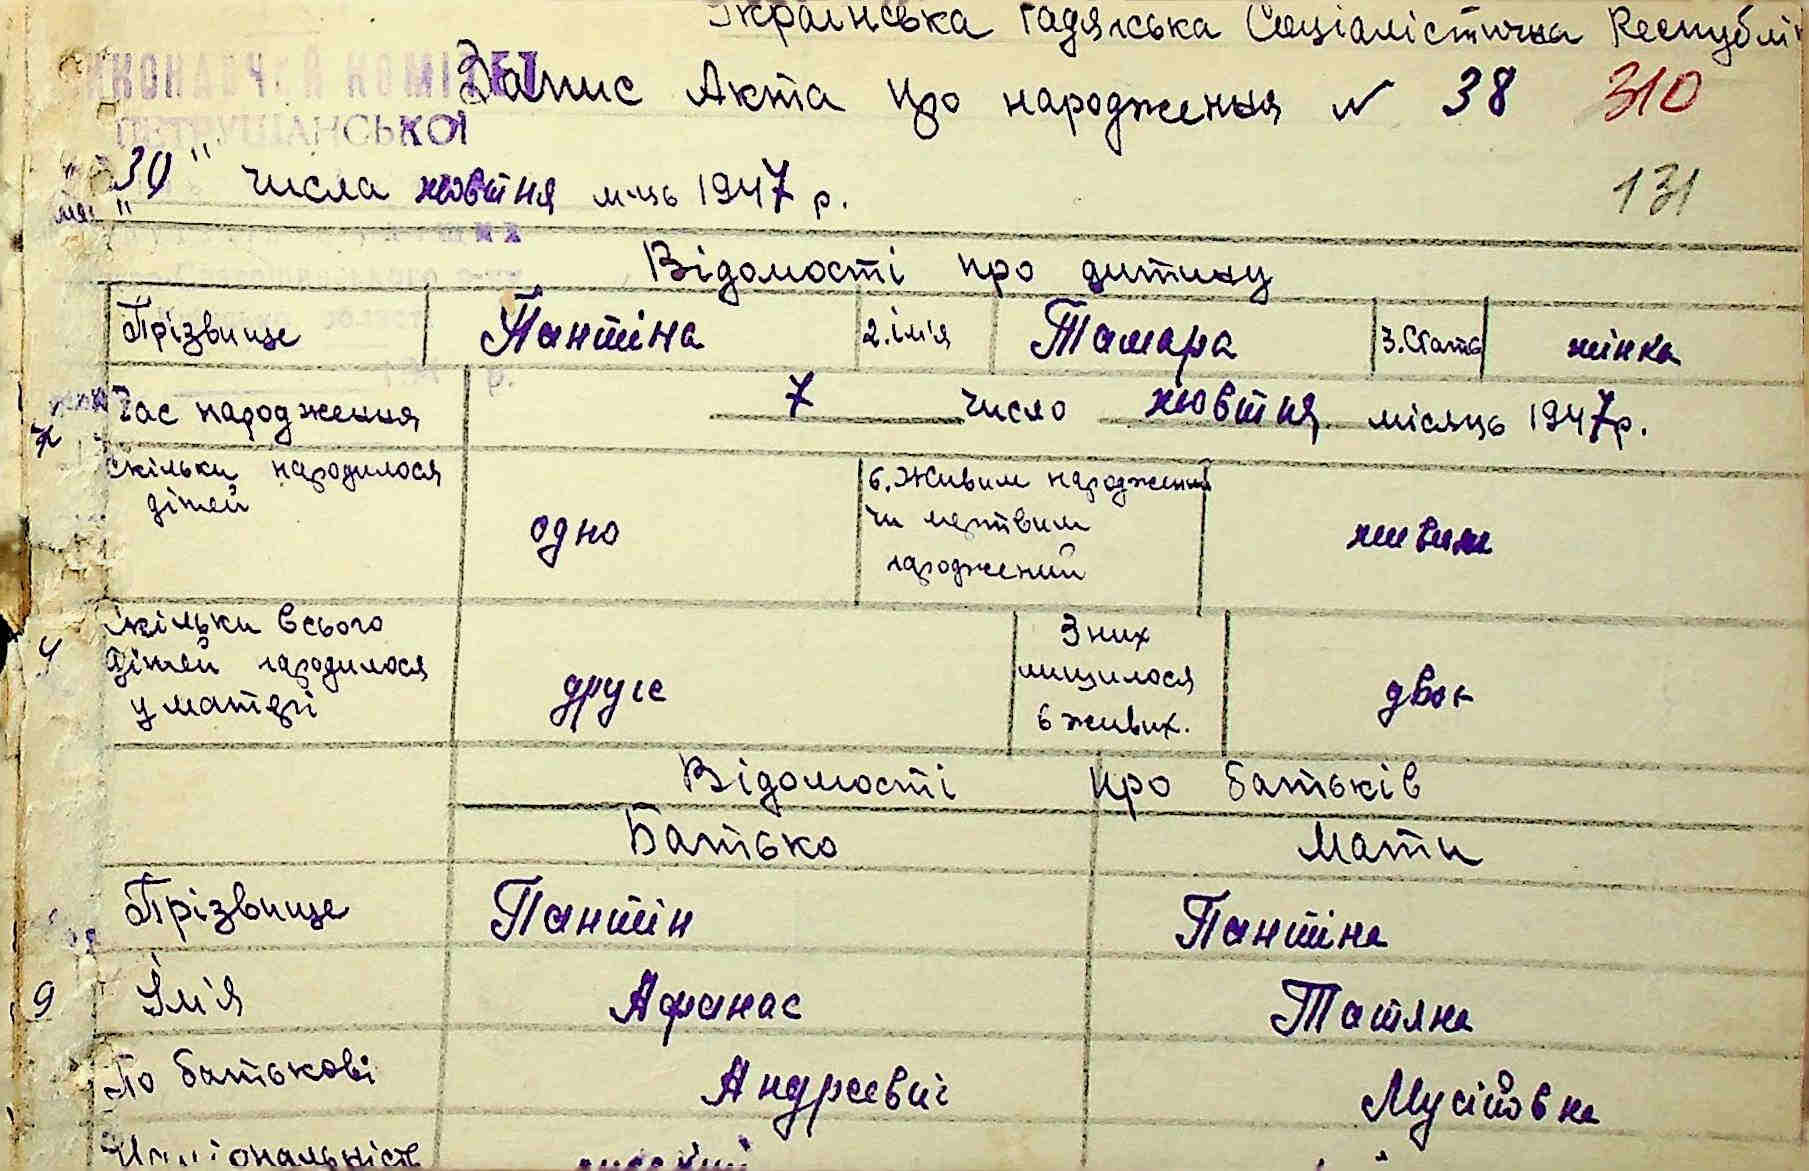 Українська Радянська Соціалістична Республі
ВИКОНАВЧИЙ КОМІТЕТ
Запис Акта про народження № 38 310
ПЕТРУШАНСЬКОЇ
"30" числа жовтня м-ць 1947 р. 131
Відомості про дитину
Прізвище Пантіна 2. імія Тамара 3. Стать жінка
Час народження 7 число жовтня місяць 1947 р.
скільки народилося дітей одно 6. Живим народжений чи мертвим народжений живим
Скільки всього дітей народилося у матері друге З них лишилося в живих. двоє
Відомості про батьків
Батько Мати
Прізвище Пантін Пантіна
9 Ім'я Афанас Татяна
По батькові Андреєвич Мусійовна
Національність